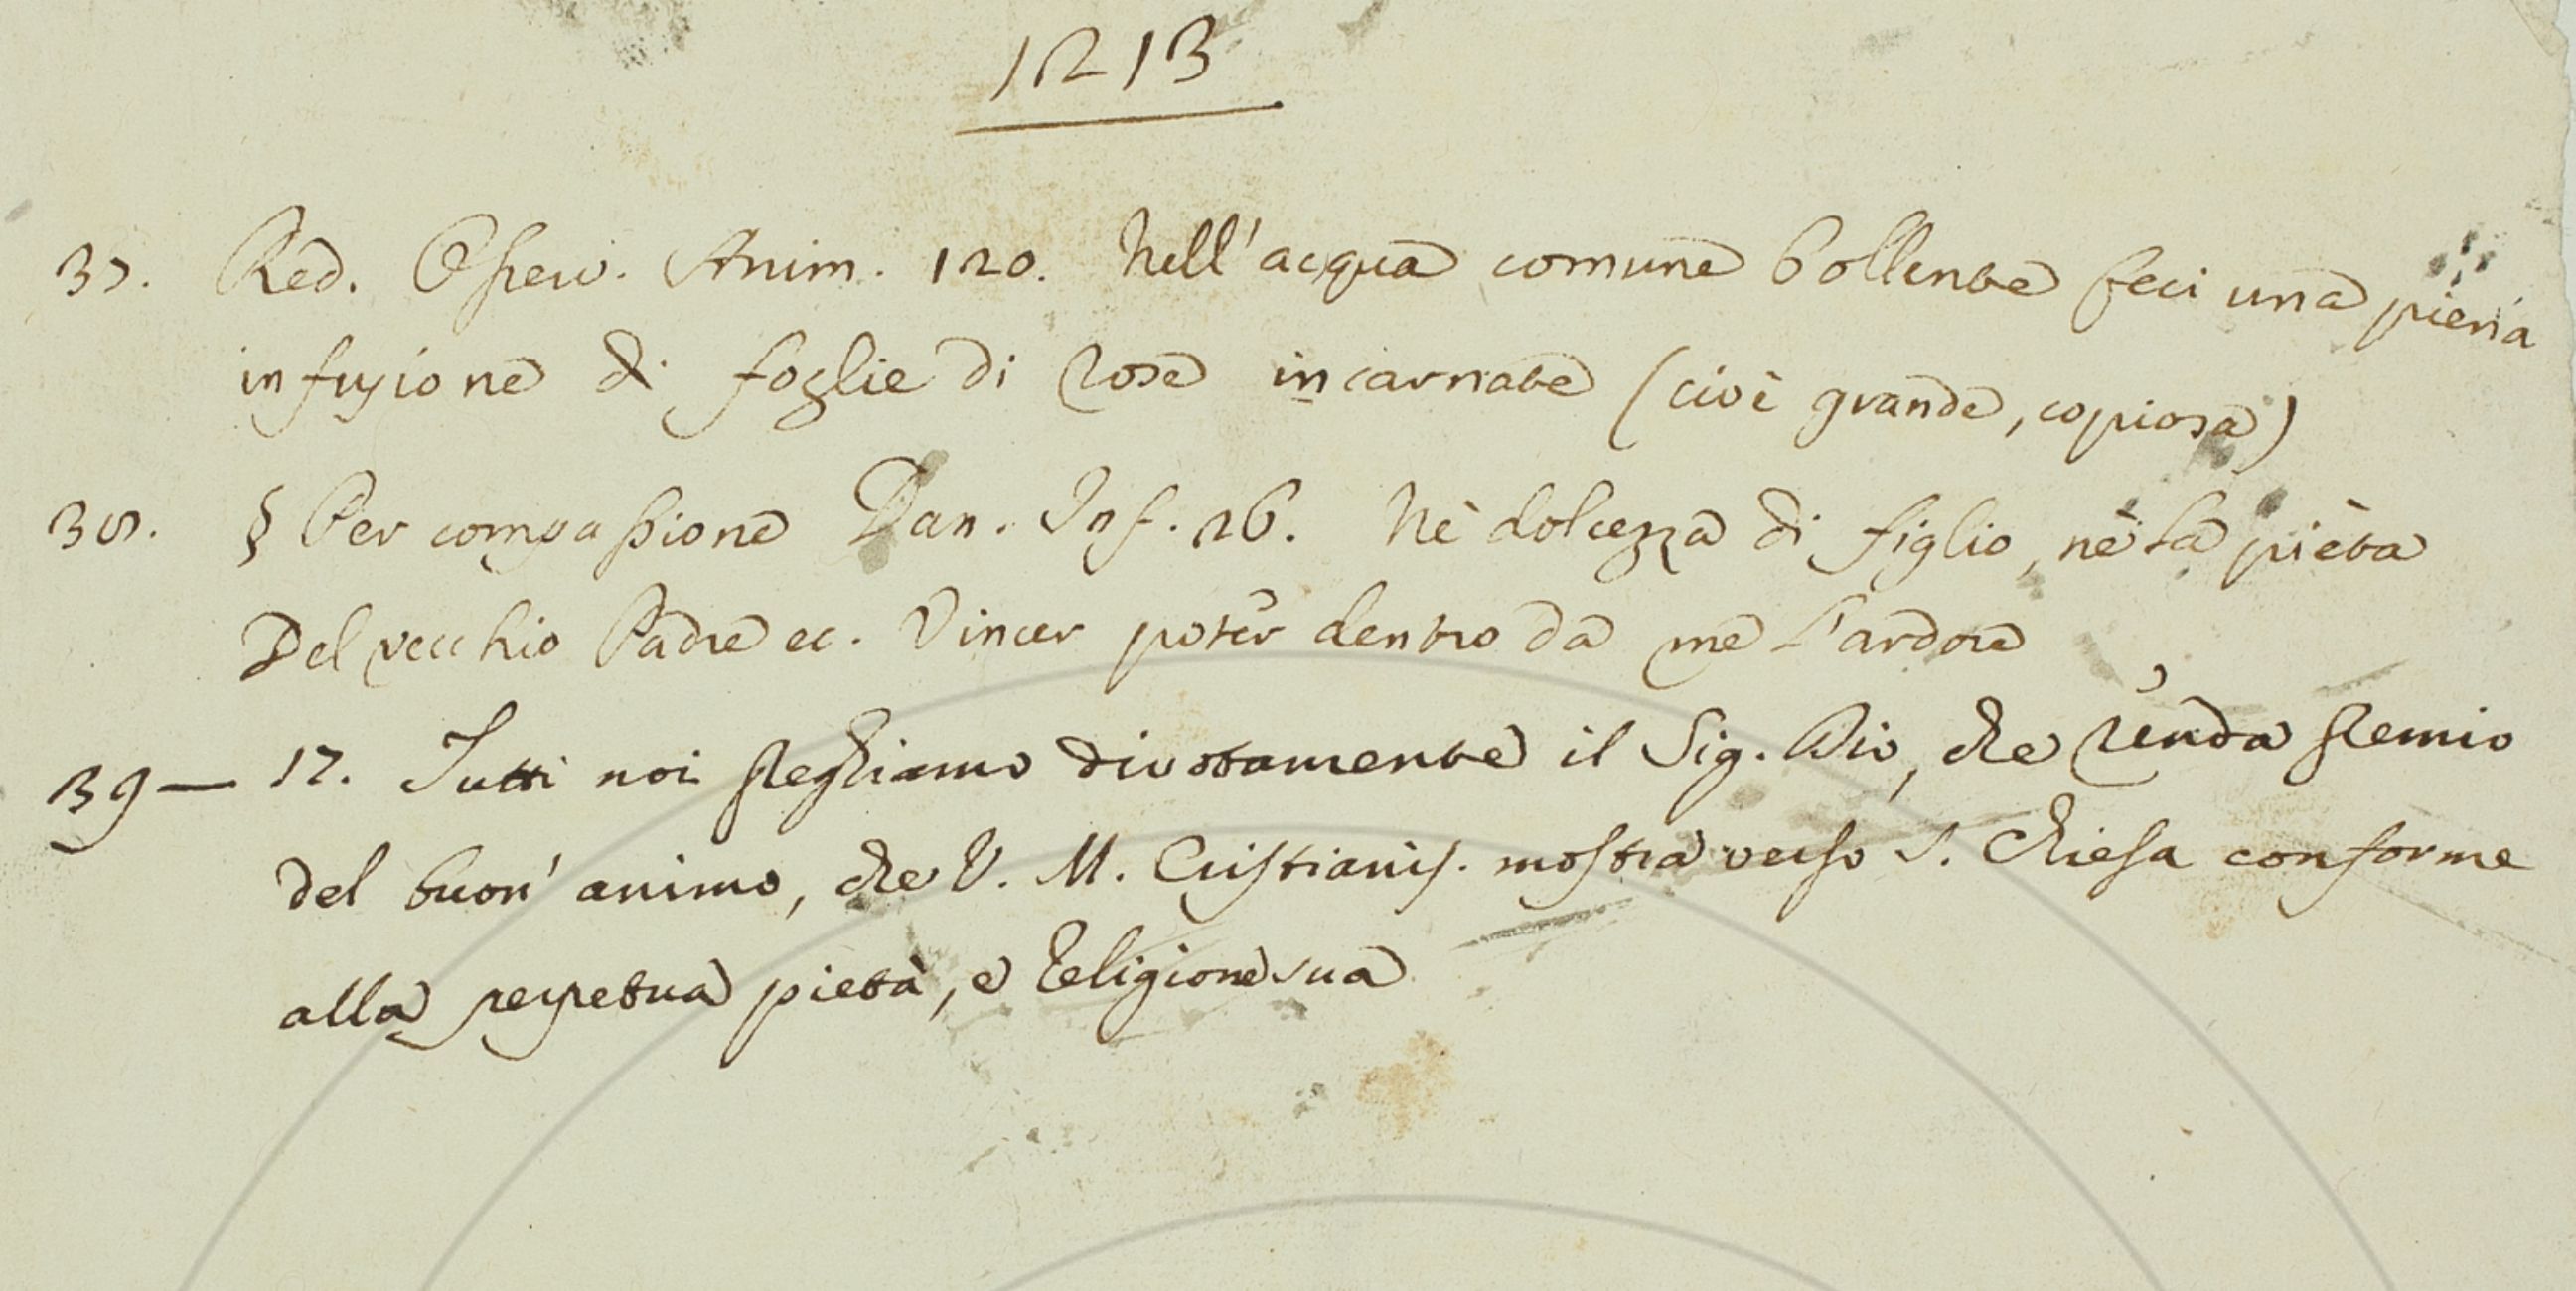 1213
37. Red. Osserv. Anim. 120. Nell'acqua comune bollente feci una piena
infusione di foglie di rose incarnate (cioè grande, copiosa)
38. § Per compassione Dan. Inf. 26. Nè dolcezza di figlio, nè la pièta
Del vecchio Padre ec. Vincer potèr dentro da me l'ardore
39 — 17. Tutti noi preghiamo divotamente il Sig. Dio, che renda premio
del buon' animo, che V. M. Cristianis. mostra verso S. Chiesa conforme
alla perpetua pietà, e religione sua